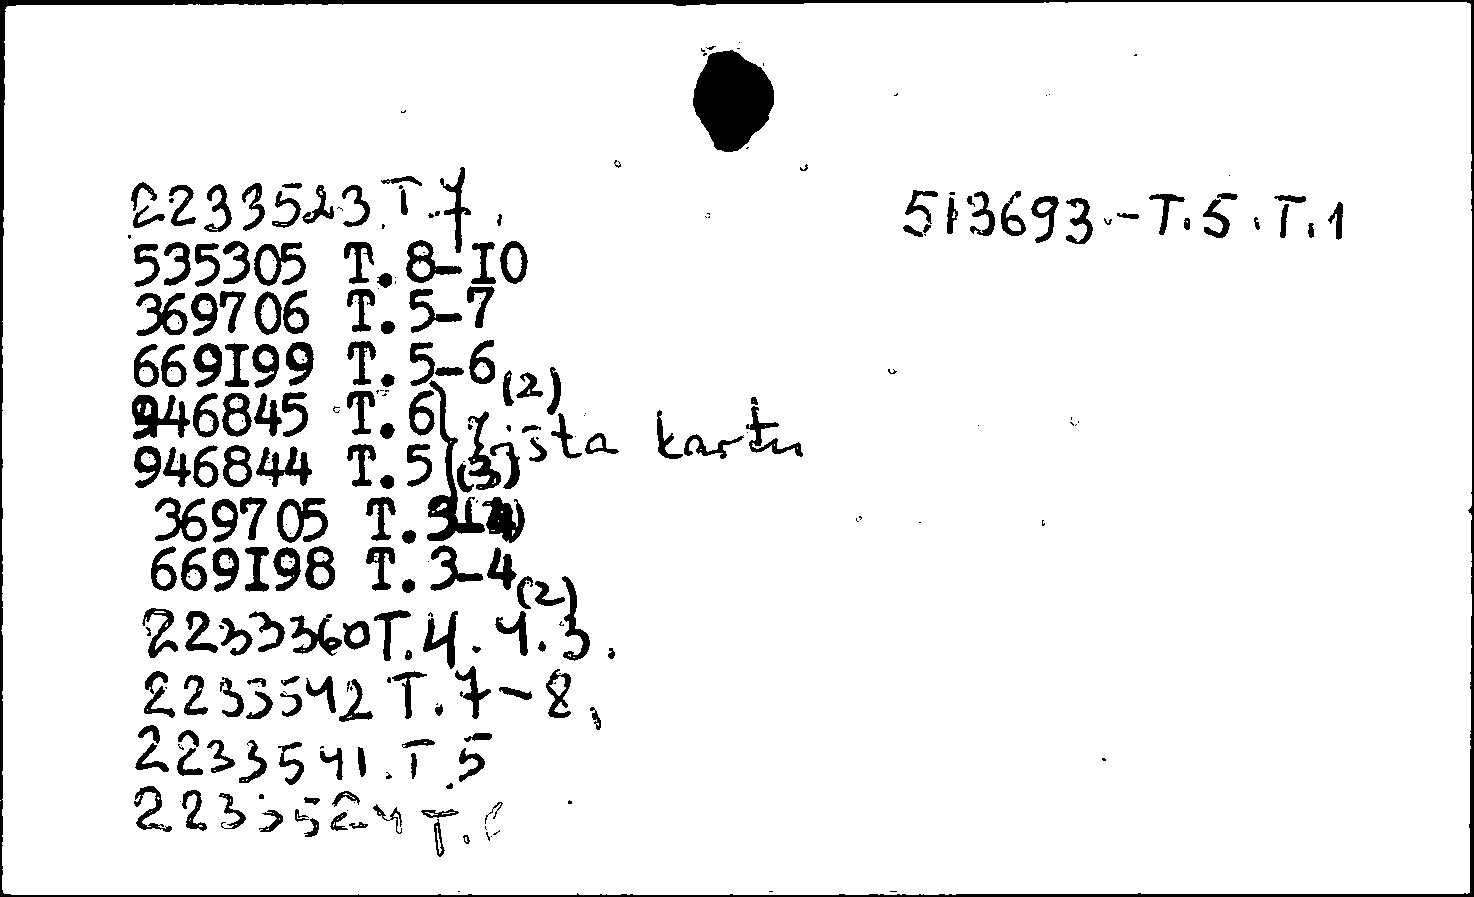 2233523.T.7.
535305 T.8-I0
369706 T.5-7
669I99 T.5-6 (2)
946845 T.6
946844 T.5 (3)
kartu
369705 T.3-4
669I98 T.3-4 (2)
2233360 T.4. 4.3.
2233542 T.7-8,
2233541.T.5
2233524 T.
513693.-T.5.T.1